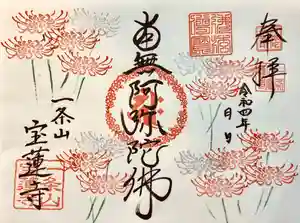 奉拝
令和四年
月 日
南無阿弥陀佛
一条山
宝蓮寺